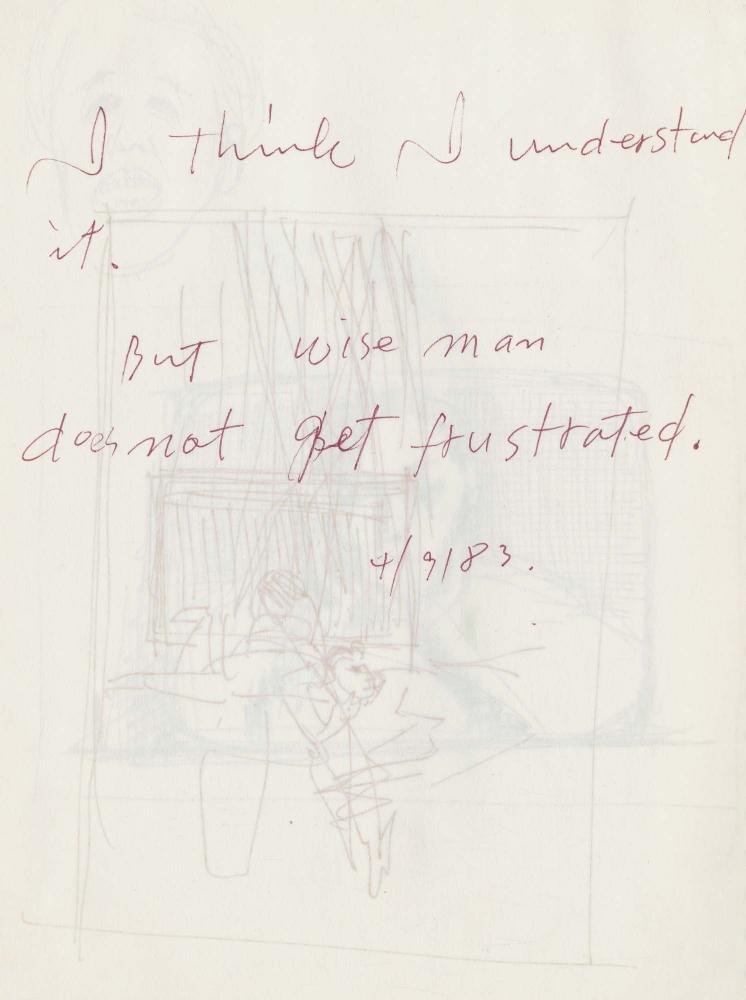 I think I understand
it.
But wise man
does not get frustrated.
4/9/83.